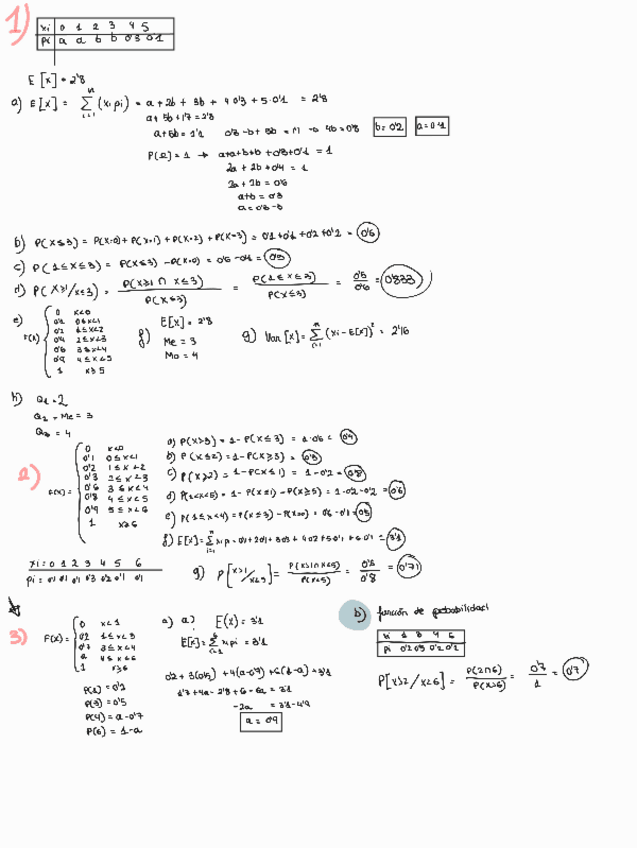 1)
xi 0 1 2 3 4 5
pi a a b b 0'3 0'1
E[x] = 2'8
a) E[x] = Σ (xi pi) = a + 2b + 3b + 4·0'3 + 5·0'1 = 2'8
a + 5b + 1'7 = 2'8
a + 5b = 1'1 0'3 - b + 5b = 1'1 → 4b = 0'8 b = 0'2 a = 0'1
P(Ω) = 1 → a+a+b+b+0'3+0'1 = 1
2a + 2b + 0'4 = 1
2a + 2b = 0'6
a+b = 0'3
a = 0'3 - b
b) P(X≤3) = P(X=0) + P(X=1) + P(X=2) + P(X=3) = 0'1 + 0'1 + 0'2 + 0'2 = 0'6
c) P(1≤X≤3) = P(X≤3) - P(X=0) = 0'6 - 0'1 = 0'5
d) P(X≥1/X≤3) = P(X≥1 ∩ X≤3) / P(X≤3) = P(1≤X≤3) / P(X≤3) = 0'5 / 0'6 = 0'833
e) F(x) =
0 x<0
0'1 0≤x<1
0'2 1≤x<2
0'4 2≤x<3
0'6 3≤x<4
0'9 4≤x<5
1 x≥5
f) E[x] = 2'8
Me = 3
Mo = 4
g) Var[x] = Σ (xi - E[x])² = 2'16
h) Q1 = 2
Q2 = Me = 3
Q3 = 4
2)
F(x) =
0 x<0
0'1 0≤x<1
0'2 1≤x<2
0'3 2≤x<3
0'6 3≤x<4
0'8 4≤x<5
0'9 5≤x<6
1 x≥6
a) P(X>3) = 1 - P(X≤3) = 1-0'6 = 0'4
b) P(X≤2) = 1 - P(X≥3) = 0'3
c) P(X≥2) = 1 - P(X≤1) = 1 - 0'2 = 0'8
d) P(1<X<5) = 1 - P(X≤1) - P(X≥5) = 1-0'2-0'2 = 0'6
e) P(1≤X<4) = P(X≤3) - P(X=0) = 0'6 - 0'1 = 0'5
f) E[x] = Σ xi pi = 0'1 + 2·0'1 + 3·0'3 + 4·0'2 + 5·0'1 + 6·0'1 = 3'1
xi = 0 1 2 3 4 5 6
pi = 0'1 0'1 0'1 0'3 0'2 0'1 0'1
3)
F(x) =
0 x<1
0'2 1≤x<3
0'7 3≤x<4
a 4≤x<6
1 x≥6
P(1) = 0'2
P(3) = 0'5
P(4) = a - 0'7
P(6) = 1 - a
a) a) E(x) = 3'1
E[x] = Σ xi pi = 3'1
0'2 + 3(0'5) + 4(a-0'7) + 6(1-a) = 3'1
1'7 + 4a - 2'8 + 6 - 6a = 3'1
-2a = 3'1 - 4'9
a = 0'9
b) función de probabilidad
xi 1 3 4 6
pi 0'2 0'5 0'2 0'2